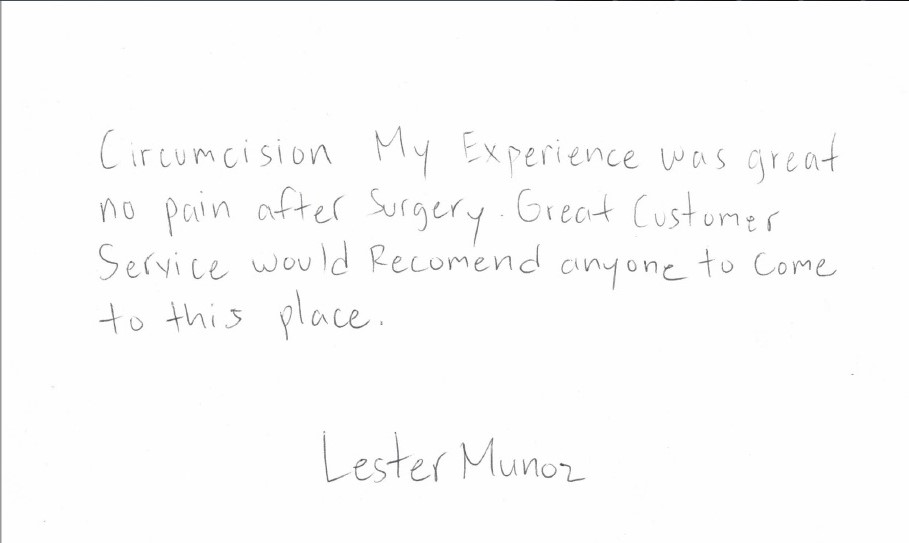 Circumcision My Experience was great
no pain after Surgery. Great Customer
Service would Recomend anyone to Come
to this place.
Lester Munoz